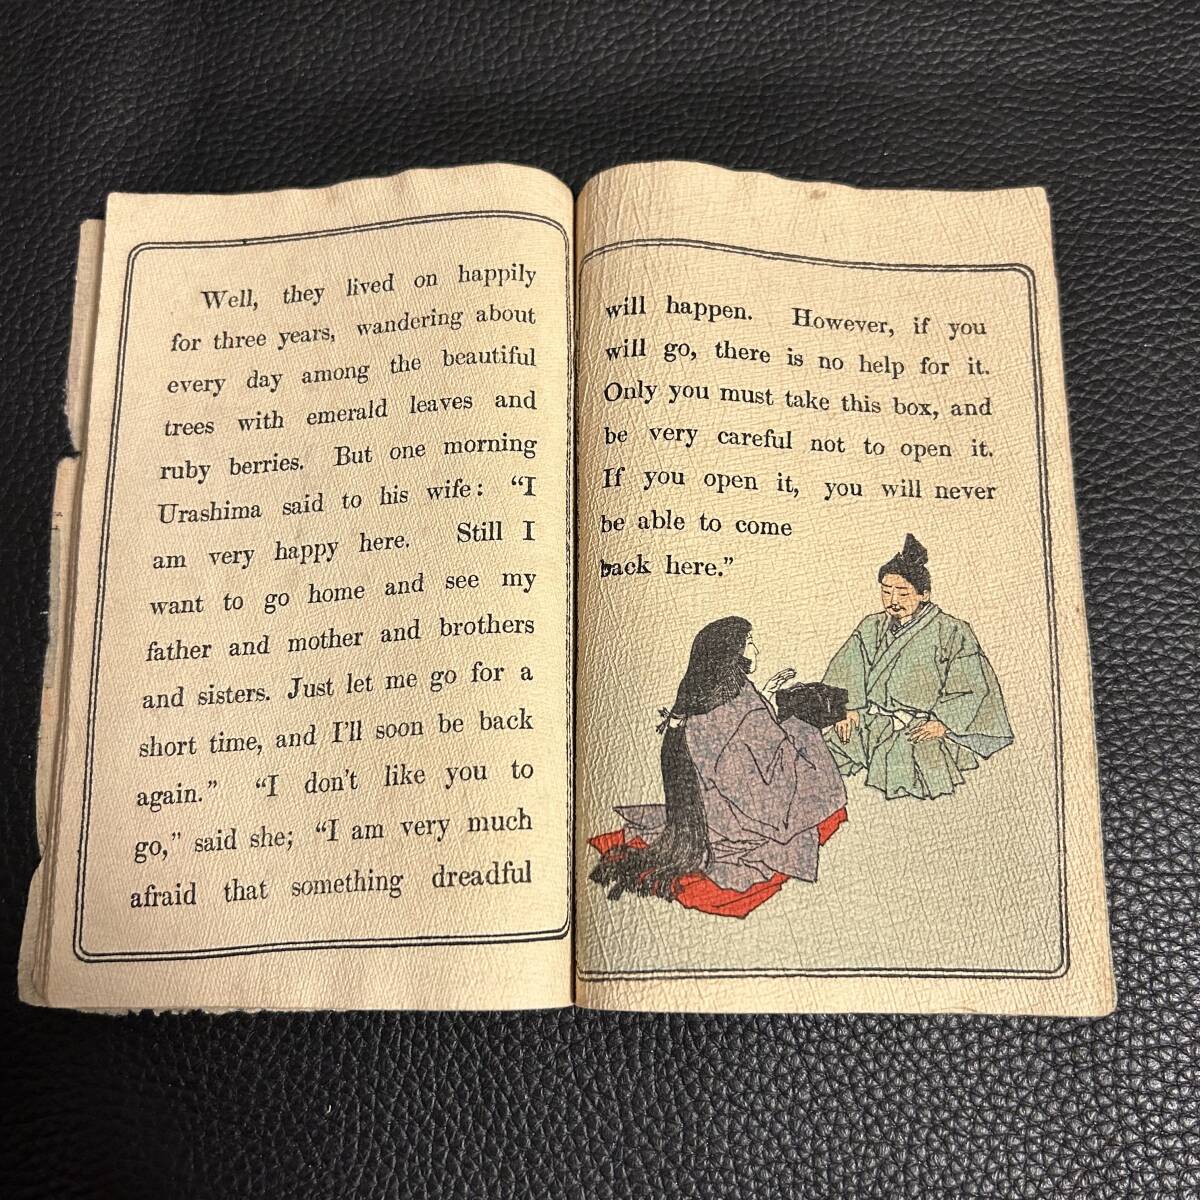 Well, they lived on happily
for three years, wandering about
every day among the beautiful
trees with emerald leaves and
ruby berries. But one morning
Urashima said to his wife: “I
am very happy here. Still I
want to go home and see my
father and mother and brothers
and sisters. Just let me go for a
short time, and I’ll soon be back
again.” “I don’t like you to
go,” said she; “I am very much
afraid that something dreadful
will happen. However, if you
will go, there is no help for it.
Only you must take this box, and
be very careful not to open it.
If you open it, you will never
be able to come
back here.”